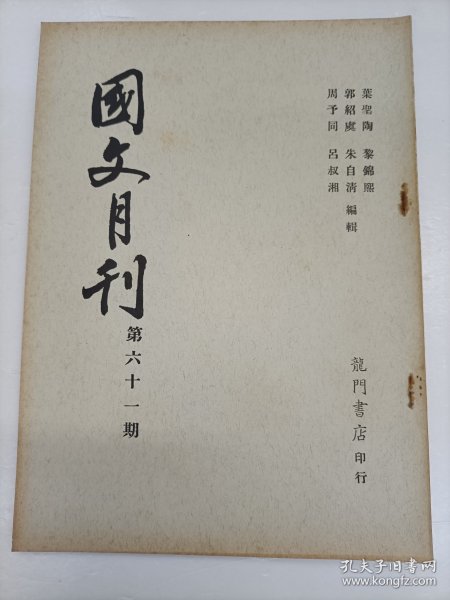 葉聖陶 黎錦熙
郭紹虞 朱自清 編輯
周予同 呂叔湘
國文月刊
第六十一期
龍門書店印行
孔夫子旧书网
www.kongfz.com